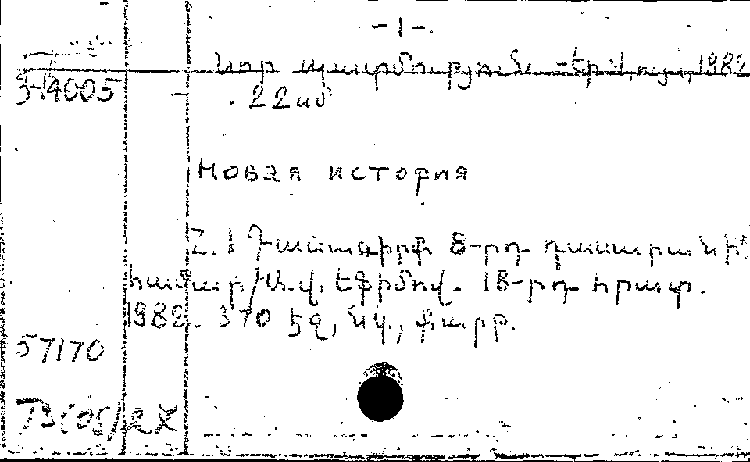 -1-.
Նոր պատմություն. -Եր., Լույս, 1982
3-4005
. 22 սմ
Новая история
Հ. 1 Դասագիրք 8-րդ դասարանի
համար/Ա.Վ. Եֆիմով. 18-րդ հրատ.
1982. 370 էջ, նկ., քարտ.
57170